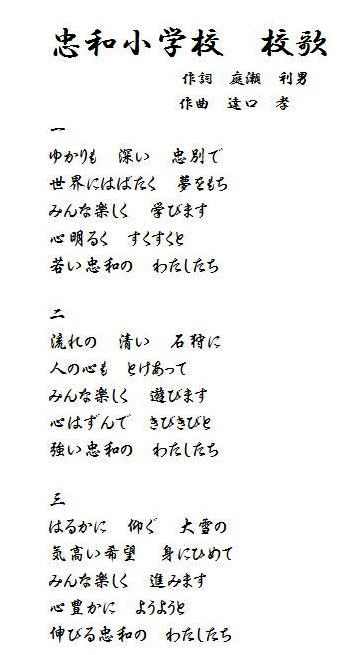 忠和小学校　校歌
作詞　庭瀬　利男
作曲　辻口　孝
一
ゆかりも　深い　忠別で
世界にはばたく　夢をもち
みんな楽しく　学びます
心明るく　すくすくと
若い忠和の　わたしたち
二
流れの　清い　石狩に
人の心も　とけあって
みんな楽しく　遊びます
心はずんで　きびきびと
強い忠和の　わたしたち
三
はるかに　仰ぐ　大雪の
気高い希望　身にひめて
みんな楽しく　進みます
心豊かに　ようようと
伸びる忠和の　わたしたち